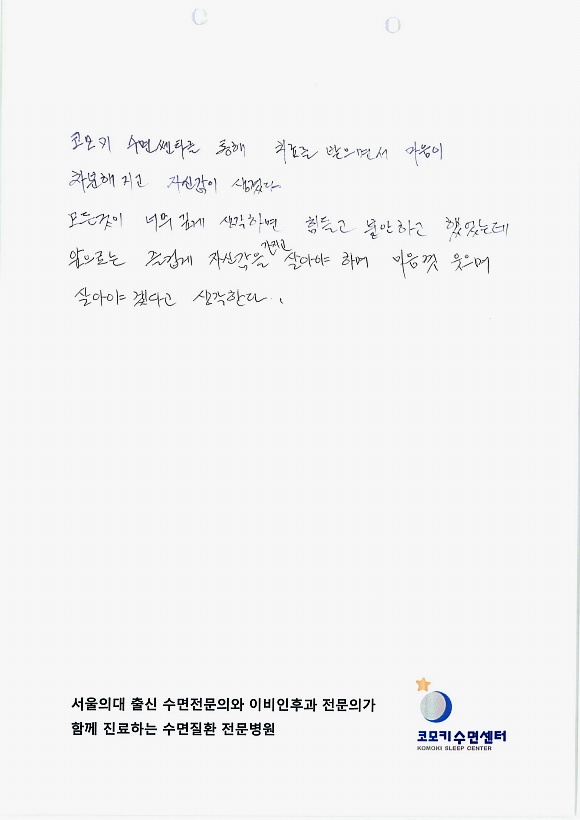 코모키 수면쎈타를 통해 치료를 받으면서 마음이
차분해 지고 자신감이 생겼다
모든것이 너무 깊게 생각하면 힘들고 불안하고 했었는데
앞으로는 즐겁게 자신감을 가지고 살아야 하며 마음껏 웃으며
살아야 겠다고 생각한다.
서울의대 출신 수면전문의와 이비인후과 전문의가
함께 진료하는 수면질환 전문병원
코모키수면센터
KOMOKI SLEEP CENTER